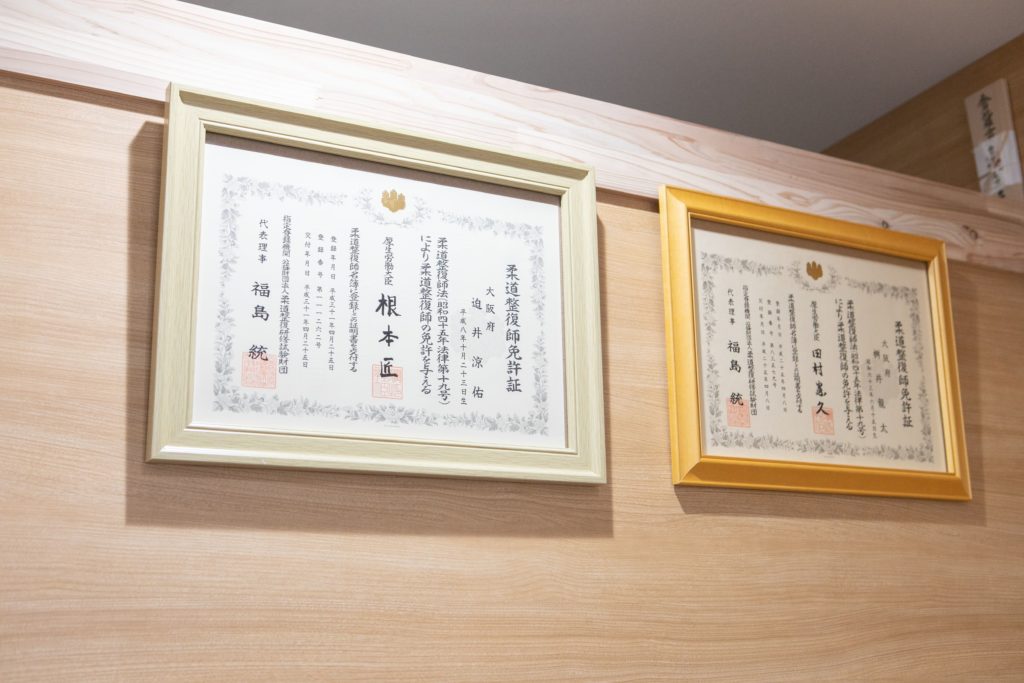 柔道整復師免許証
大阪府
迫井涼佑
平成八年十月二十三日生
柔道整復師法(昭和四十五年法律第十九号)
により柔道整復師の免許を与える
厚生労働大臣 根本匠
柔道整復師名簿に登録しこの証明書を交付する
登録年月日 平成三十一年四月二十五日
登録番号 第一一一二六二号
交付年月日 平成三十一年四月二十五日
指定登録機関 公益財団法人柔道整復研修試験財団
代表理事 福島統
柔道整復師免許証
大阪府
龍太
柔道整復師法(昭和四十五年法律第十九号)
により柔道整復師の免許を与える
厚生労働大臣 田村憲久
柔道整復師名簿に登録しこの証明書を交付する
指定登録機関 公益財団法人柔道整復研修試験財団
代表理事 福島統